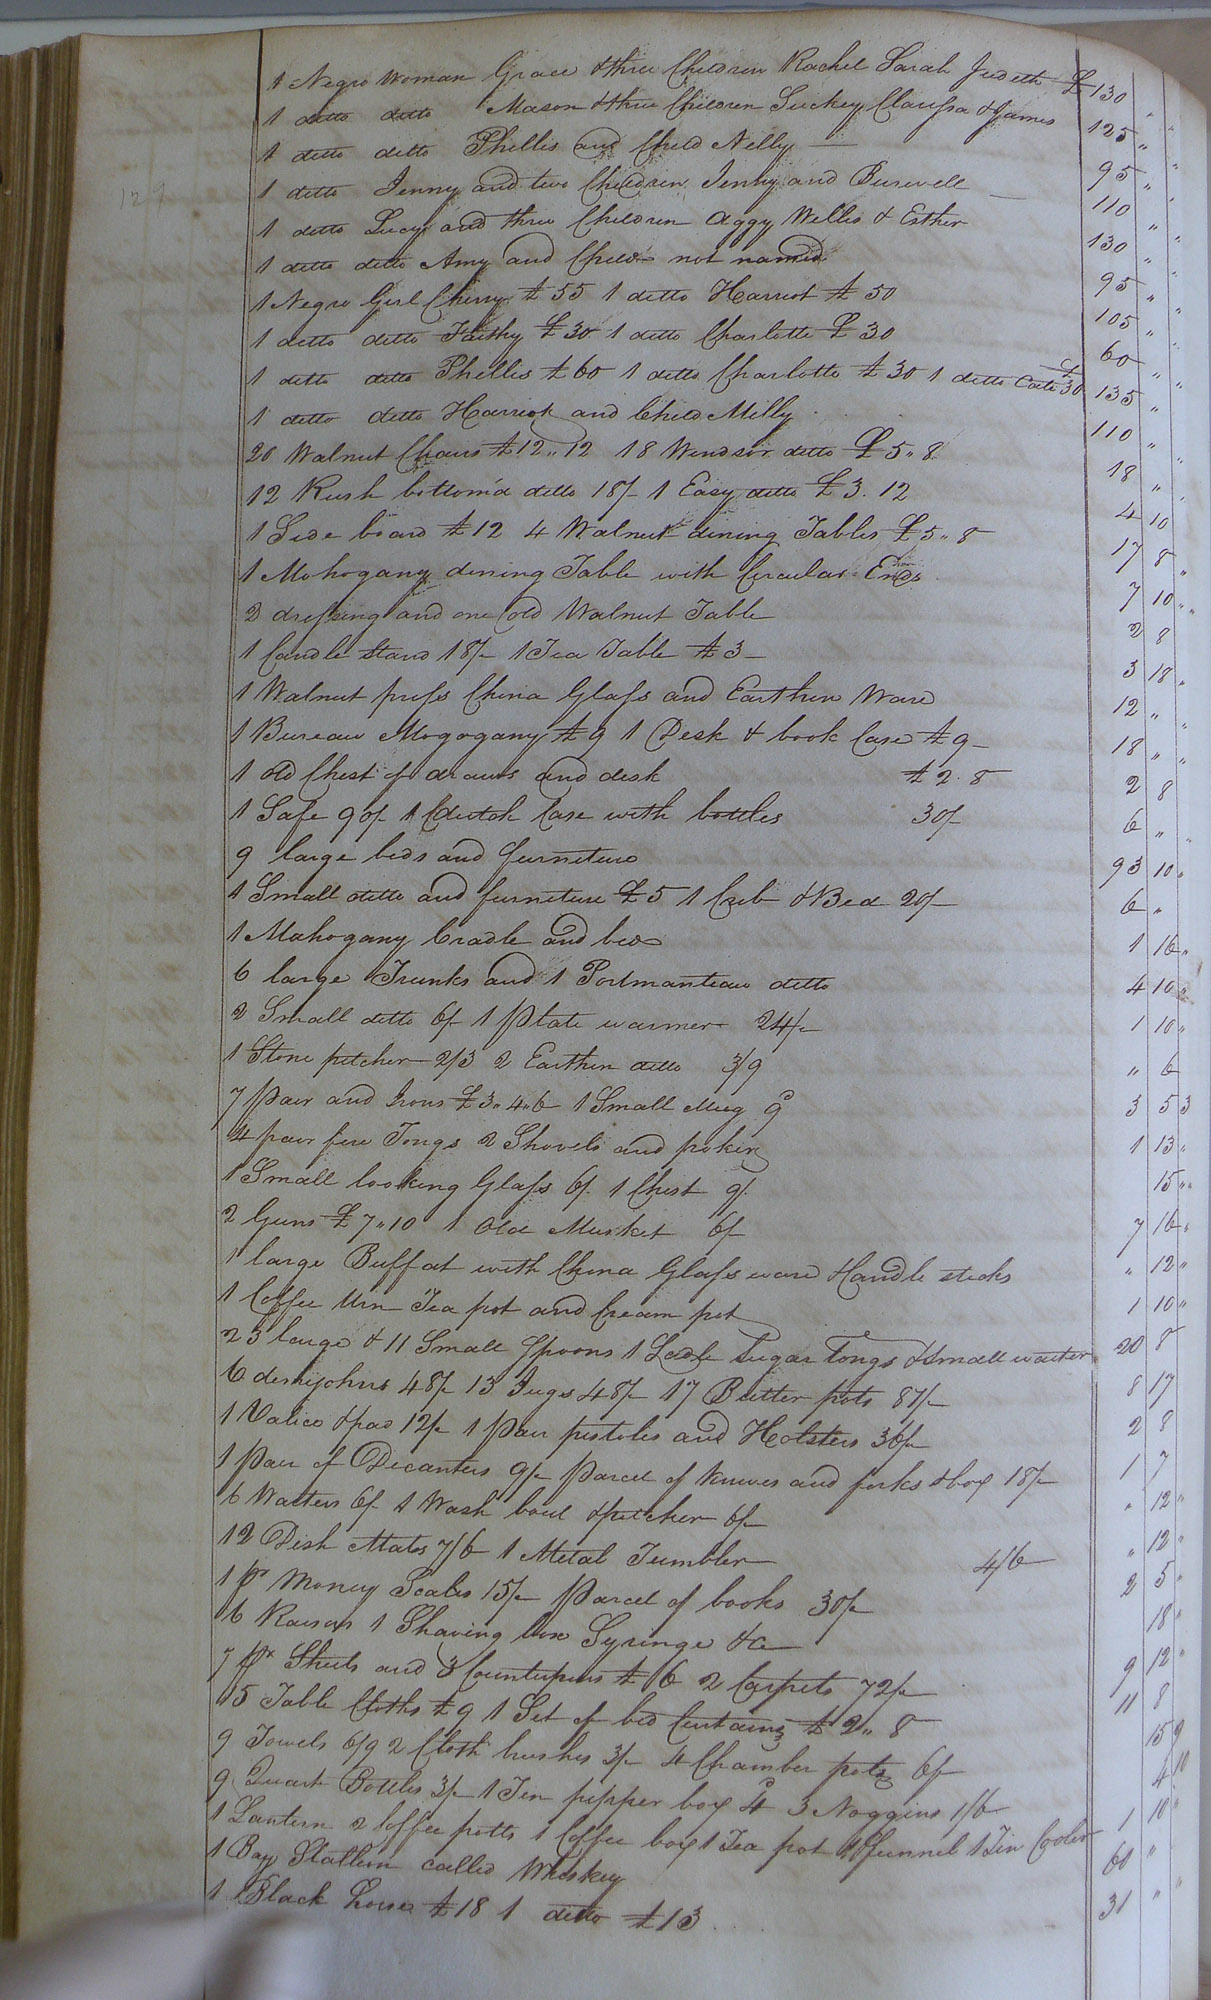 1 Negro Woman Grace & three Children Rachel Sarah Judeth £ 130 " "
1 ditto ditto Mason & three Children Suckey Clarissa & James 125 " "
1 ditto ditto Phillis and Child Nelly — 95 " "
1 ditto Jenny and two Children Jenny and Burwell — 110 " "
1 ditto Lucy and three Children Aggy Willis & Esther 130 " "
1 ditto ditto Amy and Child not named 95 " "
1 Negro Girl Cherry £ 55 1 ditto Harriot £ 50 105 " "
1 ditto ditto £ 30 1 ditto Charlotte £ 30 60 " "
1 ditto ditto Phillis £ 60 1 ditto Charlotte £ 30 1 ditto Cate £ 30 135 "
1 ditto ditto Harriot and Child Milly 110 " "
20 Walnut Chairs £ 12 " 12 18 Windsor ditto £ 5 " 8 18 " "
12 Rush bottom'd ditto 18/- 1 Easy ditto £ 3 . 12 4 10
1 Side board £ 12 4 Walnut dining Tables £ 5 " 8 17 8 "
1 Mohogany dining Table with Circular Ends 7 10 "
2 dressing and one old Walnut Table 2 8
1 Candle Stand 18/- 1 Tea Table £ 3 — 3 18 "
1 Walnut press China Glass and Earthen Ware 12 " "
1 Bureau Mogogany £ 9 1 Desk & book Case £ 9 — 18 " "
1 old Chest of draws and desk £ 2 . 8 2 8
1 Safe 90/- 1 Dutch Case with bottles 30/- 6 " "
9 large beds and furniture 93 10 "
1 Small ditto and furniture £ 5 1 Crib & Bed 20/- 6 "
1 Mahogany Cradle and bed 1 16 "
6 large Trunks and 1 Portmanteau ditto 4 10 "
2 Small ditto 6/- 1 Plate warmer 24/- 1 10 "
1 Stone pitcher 2/3 2 Earthen ditto 3/9 " 6
7 Pair and Irons £ 3 " 4 " 6 1 Small Mug 9d 3 5 3
4 pair fire Tongs 2 Shovels and poker 1 13 "
1 Small looking Glass 6/- 1 Chest 9/- 15 "
2 Guns £ 7 " 10 1 Old Musket 6/- 7 16 "
1 large Buffat with China Glass ware & Candle sticks " 12 "
1 Coffee Urn Tea pot and Cream pot 1 10 "
23 large & 11 Small Spoons 1 Ladle Sugar Tongs & small waiter 20 8
6 demijohns 48/- 13 Jugs 48/- 17 Butter pots 81/- 8 17
1 Valice & pad 12/- 1 Pair pistoles and Holsters 36/- 2 8
1 Pair of Decanters 9/- Parcel of knives and forks & box 18/- 1 7
6 Waiters 6/- 1 Wash bowl & pitcher 6/- " 12 "
12 Dish Mats 7/6 1 Metal Tumbler 4/6 " 12 "
1 pr Money Scales 15/- Parcel of books 30/- 2 5 "
6 Raisors 1 Shaving box Syringe &c 18 "
7 pr Sheets and 3 Counterpins £ 6 2 Carpets 72/- 9 12 "
15 Table Cloths £ 9 1 Set of bed Curtains £ 2 " 8 11 8
9 Towels 6/9 2 Cloth brushes 3/- 4 Chamber pots 6/- 15 9
9 Quart Bottles 3/- 1 Tin pepper box 4d 3 Noggins 1/6 4 10
1 Lantern 2 Coffee potts 1 Coffee box 1 Tea pot 1 funnel 1 Tin Cooler 1 10 "
1 Bay Stallion called Whiskey 60 "
1 Black horse £ 18 1 ditto £ 13 31 " "